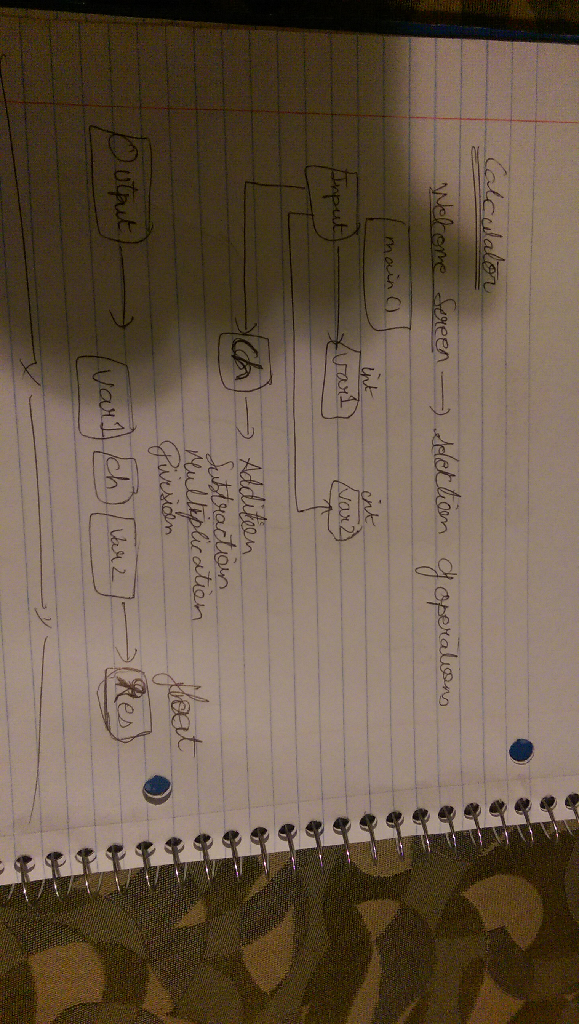 Calculator
Welcome Screen → Selection of operations
main()
int int
Input → var1 var2
Ch → Addition
Subtraction
Multiplication
Division
float
Output → var1 Ch var2 → Res